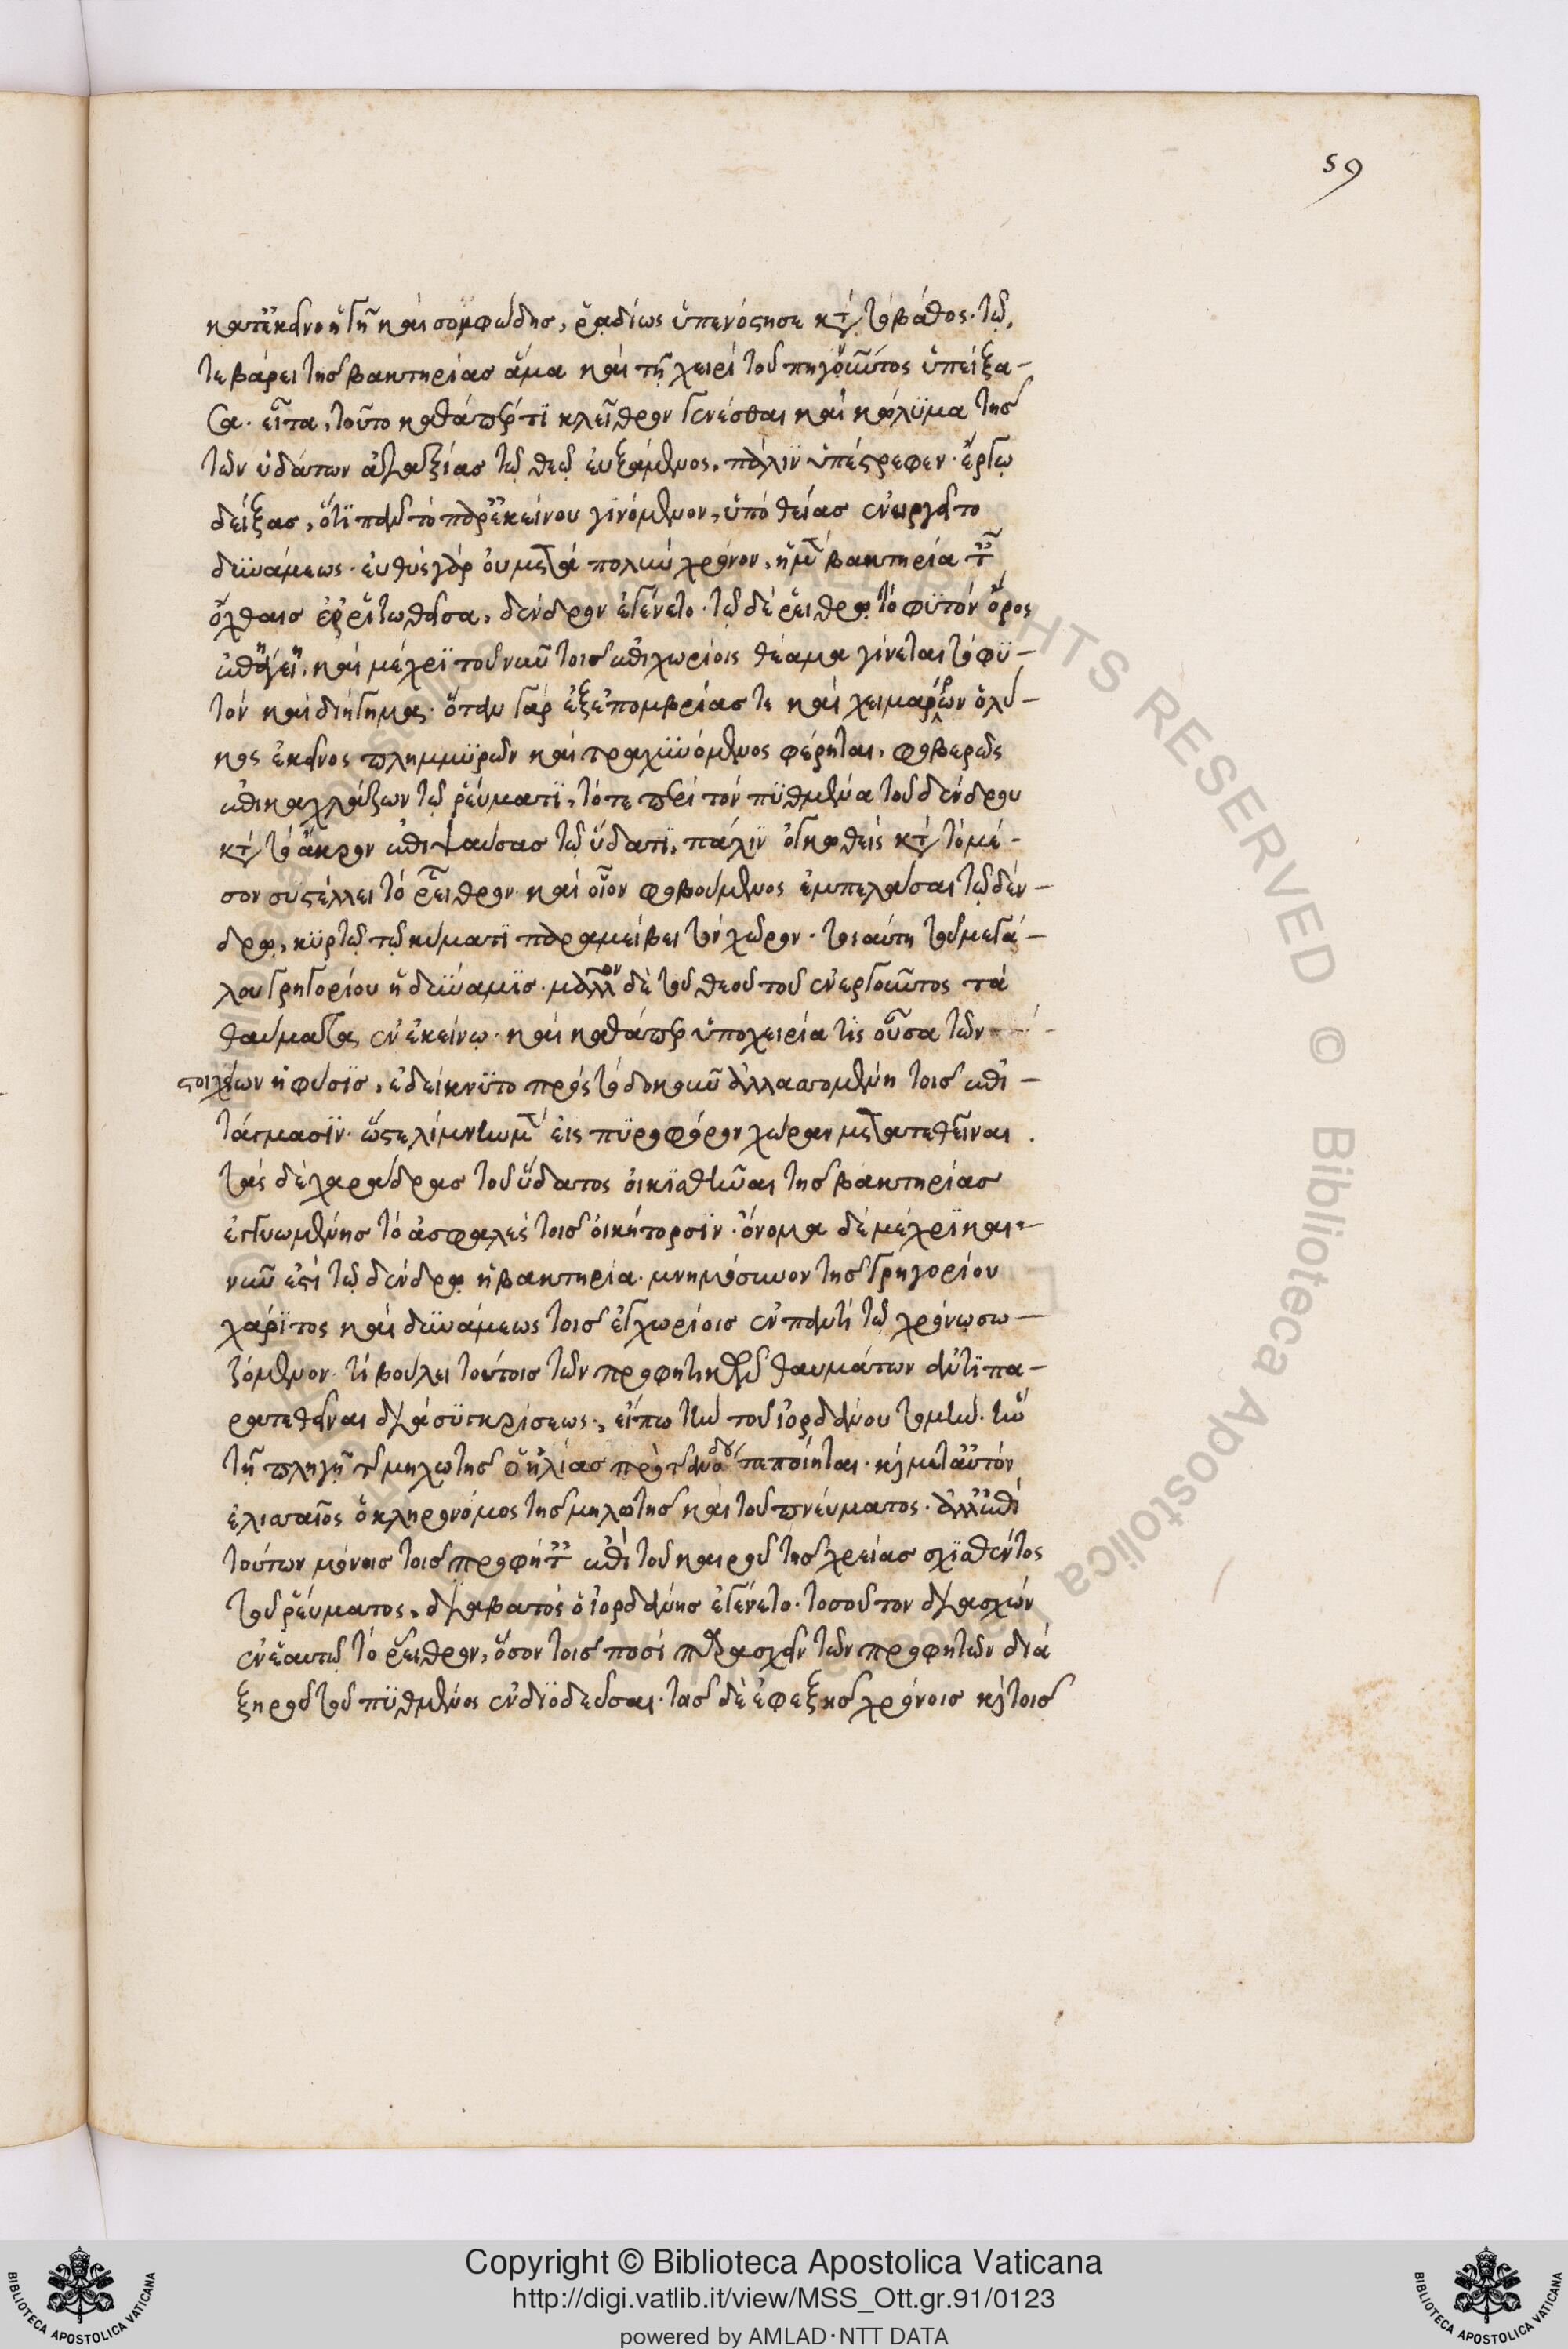 59
κατ' ἐκεῖνο ἡ γῆ καὶ σομφώδης, ῥαδίως ὑπενόστησε κατὰ τὸ βάθος. τῷ,
τε βάρει τῆς βακτηρίας ἅμα καὶ τῇ χειρὶ τοῦ πηγνῦντος ὑπείξα-
σα. εἶτα, τοῦτο καθάπερ τι κλεῖθρον γενέσθαι καὶ κώλυμα τῆς
τῶν ὑδάτων ἀταξίας τῷ θεῷ εὐξάμενος, πάλιν ὑπέστρεφεν. ἔργῳ
δείξας, ὅτι πᾶν τὸ παρ' ἐκείνου γινόμενον, ὑπὸ θείας ἐνειργάτο
δυνάμεως. εὐθὺς γὰρ οὐ μετὰ πολὺν χρόνον, ἡ μὲν βακτηρία ταῖς
ὄχθαις ἐρριζωθεῖσα, δένδρον ἐγένετο. τῷ δὲ ῥείθρῳ τὸ φυτὸν ὅρος
ἐπήγει. καὶ μέχρι τοῦ νῦν τοῖς ἐπιχωρίοις θέαμα γίνεται τὸ φυ-
τὸν καὶ διήγημα. ὅταν γὰρ ἐξ ἐπομβρίας τε καὶ χειμάρρων ὁλκ-
κος ἐκεῖνος πλημμυρῶν καὶ τραχυνόμενος φέρηται, φοβερῶς
ἐπικαχλάζων τῷ ῥεύματι, τότε περὶ τὸν πυθμένα τοῦ δένδρου
κατὰ τὸ ἄκρον ἐπιψαύσας τῷ ὕδατι, πάλιν ὀγκωθεὶς κατὰ τὸ μέ-
σον συστέλλει τὸ ῥεῖθρον. καὶ οἷον φοβούμενος ἐμπελάσαι τῷ δέν-
δρῳ, κυρτῷ τῷ κύματι παραμείβει τὸν χῶρον. τοιαύτη τοῦ μεγά-
λου γρηγορίου ἡ δύναμις. μᾶλλον δὲ τοῦ θεοῦ τοῦ ἐνεργοῦντος τὰ
θαύματα ἐν ἐκείνῳ. καὶ καθάπερ ὑποχειρία τις οὖσα τῶν
στοιχείων ἡ φύσις, ἐδείκνυτο πρὸς τὸ δοκοῦν ἀλλασσομένη τοῖς ἐπι-
τάγμασιν. ὥστε λίμνην μὲν εἰς πυροφόρον χώραν μετατεθεῖναι.
τὰς δὲ χαράδρας τοῦ ὕδατος οἰκισθῆναι τῆς βακτηρίας
ἐγγυωμένης τὸ ἀσφαλὲς τοῖς οἰκήτορσιν. ὄνομα δὲ μέχρι καὶ
νῦν ἐστὶ τῷ δένδρῳ ἡ βακτηρία. μνημόσυνον τῆς γρηγορίου
χάριτος καὶ δυνάμεως τοῖς ἐγχωρίοις ἐν παντὶ τῷ χρόνῳ σω-
ζόμενον. τί βούλει τούτοις τῶν προφητικῶν θαυμάτων ἀντιπα-
ρατεθεῖναι διὰ συγκρίσεως; εἴπω τὴν τοῦ ἰορδάνου τομήν. ἣν
τῇ πληγῇ τῆς μηλωτῆς ὁ ἠλίας πρὸ τῆς ἀνόδου πεποίηται. καὶ μετ' αὐτὸν
ἐλισσαῖος ὁ κληρονόμος τῆς μηλωτῆς καὶ τοῦ πνεύματος. ἀλλ' ἐπὶ
τούτων μόνοις τοῖς προφήταις ἐπὶ τοῦ καιροῦ τῆς χρείας σχισθέντος
τοῦ ῥεύματος, διαβατὸς ὁ ἰορδάνης ἐγένετο. τοσοῦτον διασχὼν
ἐν ἑαυτῷ τὸ ῥεῖθρον, ὅσον τοῖς ποσὶ παρασχεῖν τῶν προφητῶν διὰ
ξηροῦ τοῦ πυθμένος ἐνδιοδεῦσαι. τοῖς δὲ ἐφεξῆς χρόνοις καὶ τοῖς
Copyright © Biblioteca Apostolica Vaticana
http://digi.vatlib.it/view/MSS_Ott.gr.91/0123
powered by AMLAD·NTT DATA